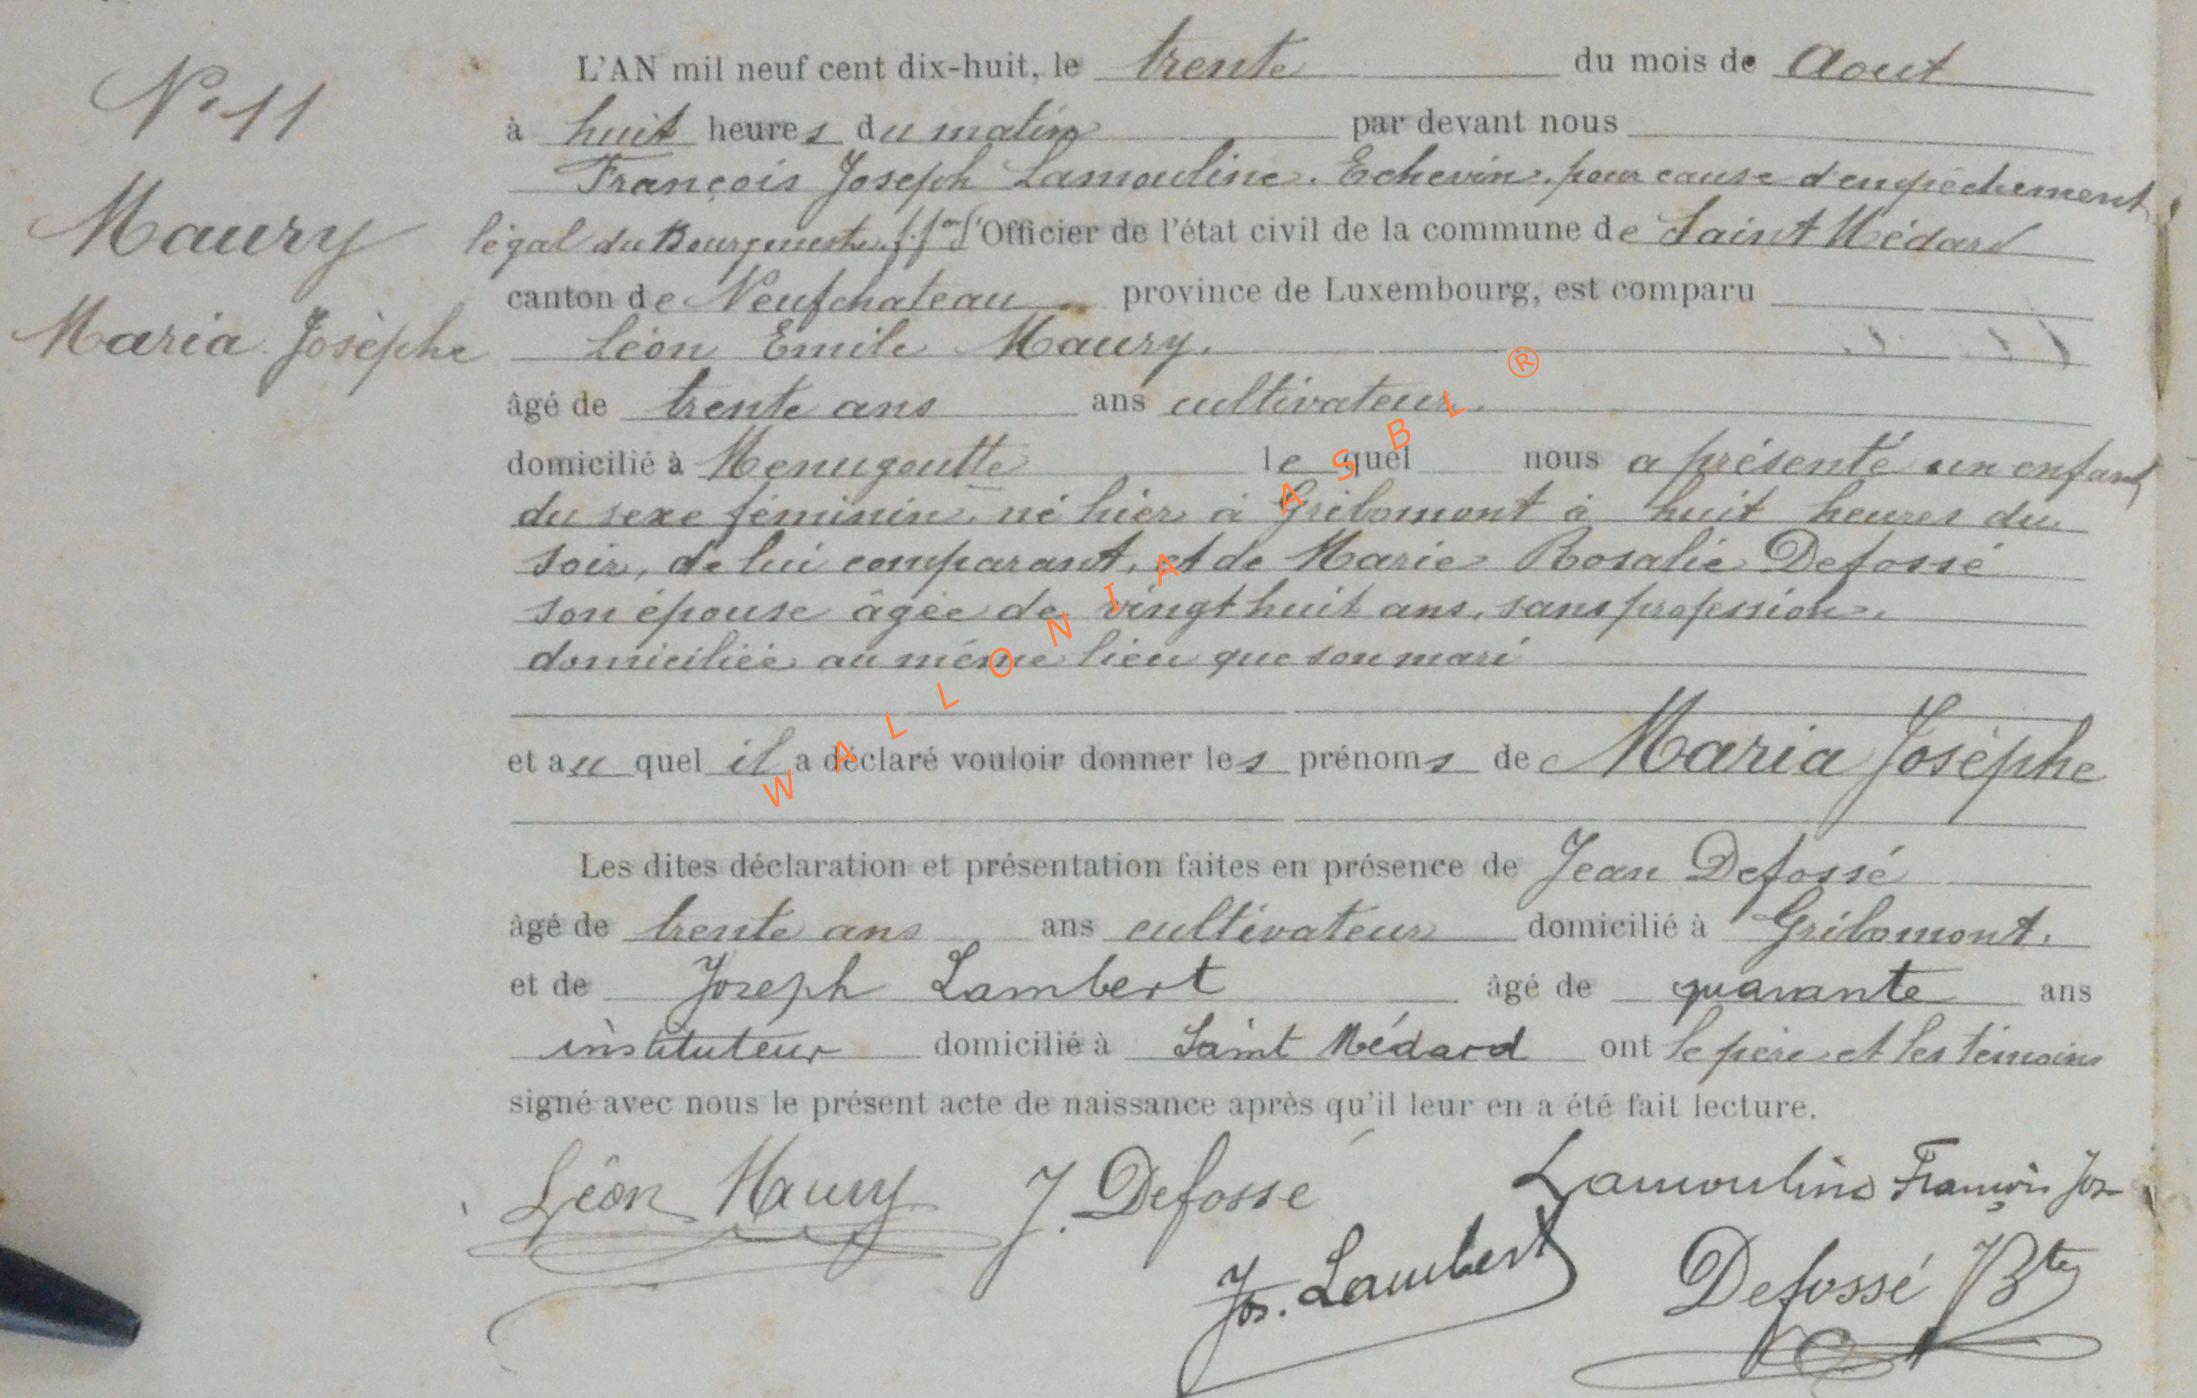 N° 11
Maury
Maria Josèphe
L'AN mil neuf cent dix-huit, le trente du mois de Aout
à huit heures du matin par devant nous
François Joseph Lamouline. Echevin, pour cause d'empêchement
légal du Bourgmestre, f. f. d'Officier de l'état civil de la commune de Saint Médard
canton de Neufchateau province de Luxembourg, est comparu
Léon Emile Maury.
âgé de trente ans ans cultivateur.
domicilié à Menugoutte le quel nous a présenté un enfant
du sexe féminin, né hier à Gribomont à huit heures du
soir, de lui comparant, et de Marie Rosalie Defossé
son épouse âgée de vingt huit ans, sans profession,
domiciliée au même lieu que son mari
et au quel il a déclaré vouloir donner les prénoms de Maria Josèphe
Les dites déclaration et présentation faites en présence de Jean Defossé
âgé de trente ans ans cultivateur domicilié à Gribomont.
et de Joseph Lambert âgé de quarante ans
instituteur domicilié à Saint Médard ont le père et les témoins
signé avec nous le présent acte de naissance après qu'il leur en a été fait lecture.
Léon Maury J. Defossé Lamouline François Jos
Jos. Lambert Defossé JBte
WALLONIA ASBL ®